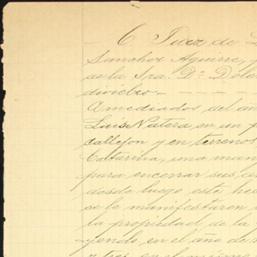 C. Juez de
Sanchez Aguirre,
de la Sra. Dª Dolo
diviclro
A mediados del añ
Luis Natera, en un p
callejon y en terrenos
Catarina, una man
para encerrar sus
desde luego este he
se le manifestaron
la propiedad de la
yendo, en el año de
y tres, en el mismo